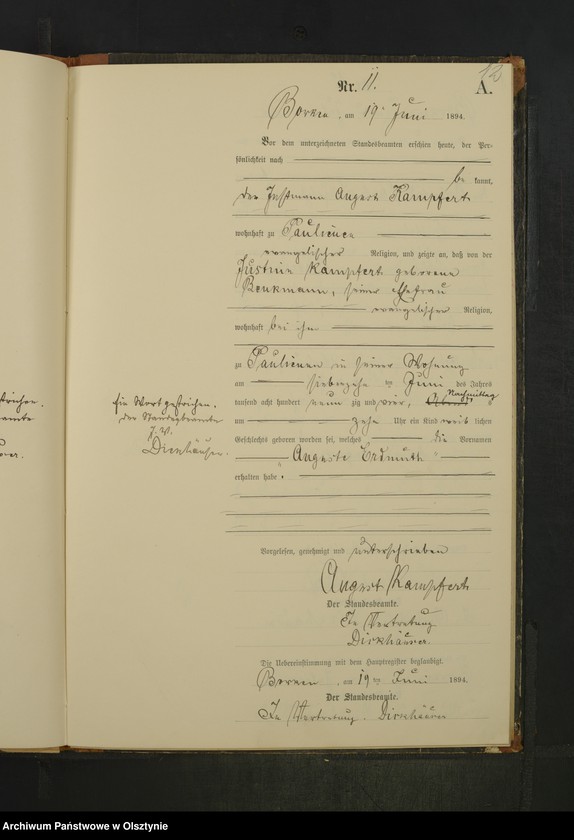 12
Nr. 11. A.
Borken, am 19. Juni 1894.
Vor dem unterzeichneten Standesbeamten erschien heute, der Per-
sönlichkeit nach
be kannt,
der Instmann August Kampfert
wohnhaft zu Paulienen
evangelischer Religion, und zeigte an, daß von der
Justine Kampfert geborene
Renkmann, seiner Ehefrau
evangelischer Religion,
wohnhaft bei ihm
zu Paulienen in seiner Wohnung
am siebzehn ten Juni des Jahres
tausend acht hundert neun zig und vier, Nachmittag
um zehn Uhr ein Kind weib lichen
Geschlechts geboren worden sei, welches die Vornamen
Auguste Erdmuth
erhalten habe.
Ein Wort gestrichen.
Der Standesbeamte
J. V.
Vorgelesen, genehmigt und unterschrieben
August Kampfert
Der Standesbeamte.
In Vertretung
Die Uebereinstimmung mit dem Hauptregister beglaubigt.
Borken, am 19 ten Juni 1894.
Der Standesbeamte.
In Vertretung.
Archiwum Państwowe w Olsztynie